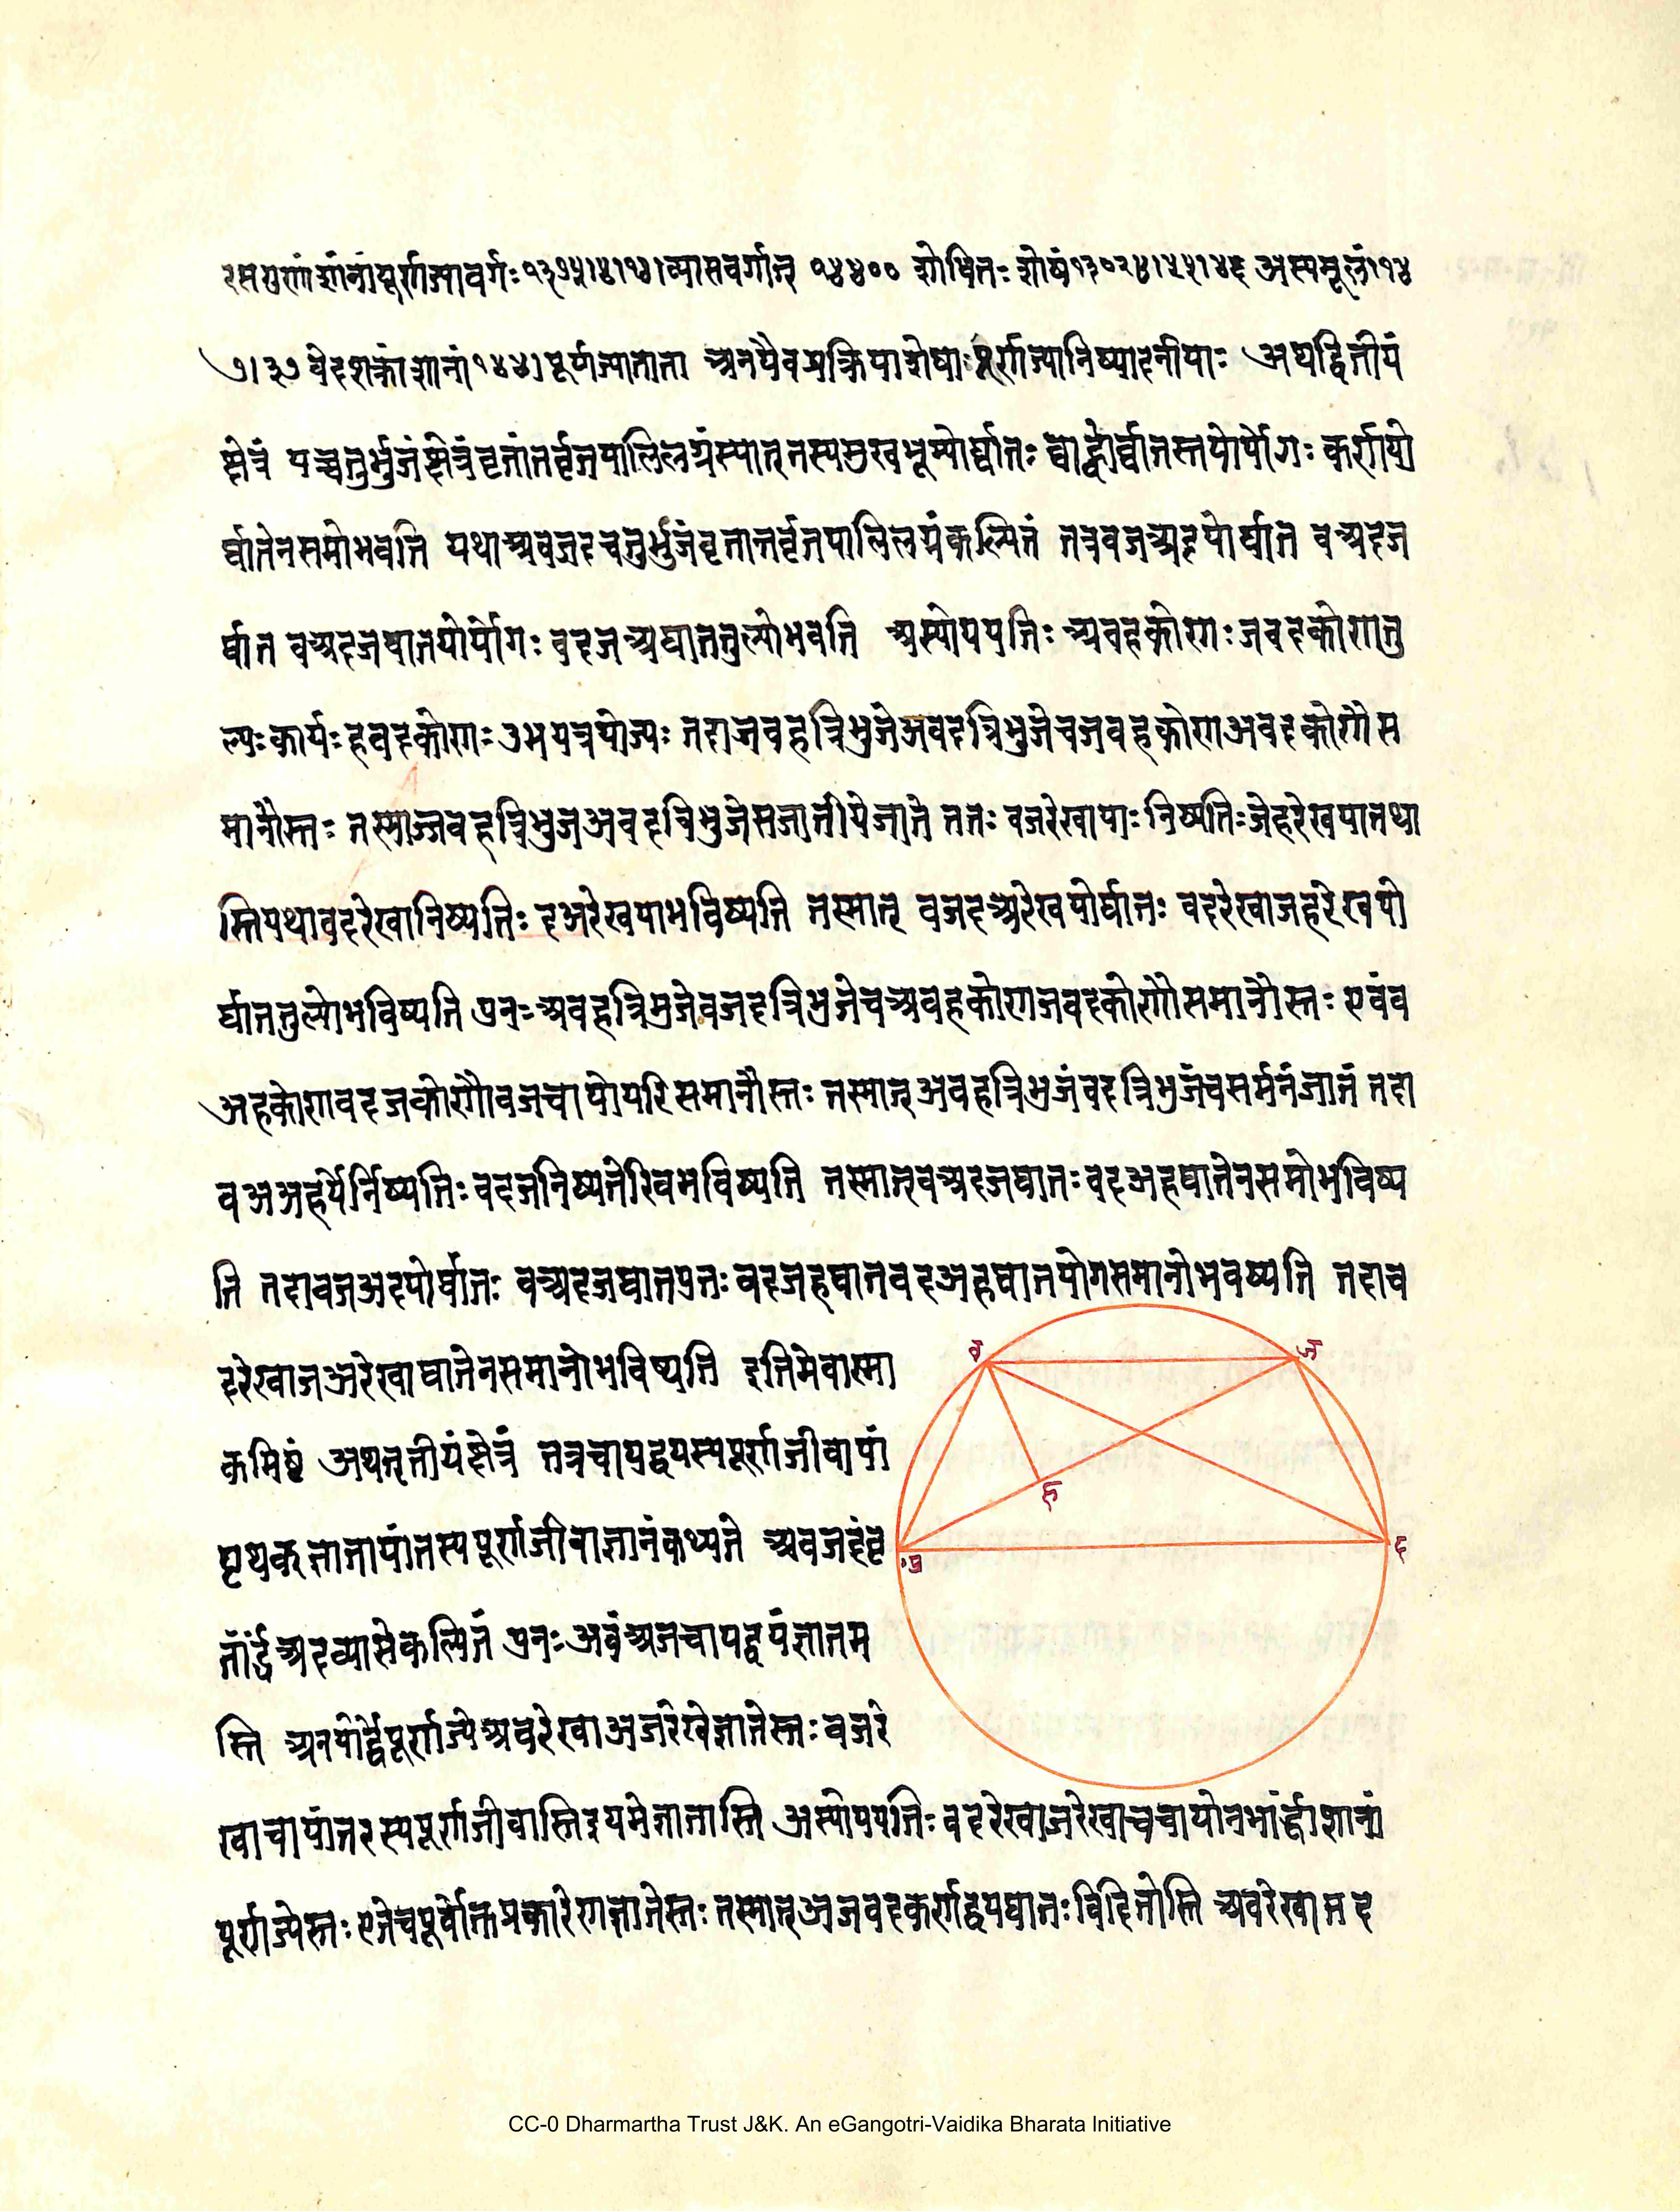 रसगुणांशानांपूर्णज्यावर्गः १३७५।४।१५।व्यासवर्गात् १४४०० शोधितः शेषं १३०२४।५५।४५ अस्यमूलं ११४
७।३७ वेदशक्रांशानां १४४। पूर्णज्याजाता अनयैवप्रक्रियाशेषाः पूर्णज्यानिष्पादनीयाः अथद्वितीयं
क्षेत्रं यच्चतुर्भुजंक्षेत्रंवृत्तांतर्वृत्तपालिलग्नंस्यात् तस्यमुखभूम्योर्घातः बाह्वोर्घातस्तयोर्योगः कर्णयो
र्घातेनसमोभवति यथाअबजदचतुर्भुजंवृत्तान्तर्वृत्तपालिलग्नंकल्पितं तत्रबजअदयोर्घात बअदज
र्घात बअदजघातयोर्योगः बदजअघाततुल्योभवति अस्योपपत्तिः अबहकोणः जबदकोणतु
ल्यःकार्यः हबदकोणः उभयत्रयोज्यः तदाजबहत्रिभुजेअबदत्रिभुजेचजबहकोणअबदकोणौस
मानौस्तः तस्माज्जबहत्रिभुजअबदत्रिभुजेसजातीयेजाते ततः बजरेखायाः निष्पतिःजेहरेखयातथा
स्तियथाबदरेखानिष्पतिः दअरेखयाभविष्यति तस्मात् बजदअरेखयोर्घातः बदरेखाजहरेखयो
र्घाततुल्योभविष्यति पुनः अबहत्रिभुजेबजदत्रिभुजेचअबहकोणजबदकोणौसमानौस्तः एवंब
अहकोणबदजकोणौबजचापोपरिसमानौस्तः तस्मात् अबहत्रिभुजंबदत्रिभुजंचसमंनंजातं तदा
बअअहर्योर्निष्पतिः बदजनिष्पतेरिवभविष्यति तस्मात्बअदजघातः बदअहघातेनसमोभविष्य
ति तदाबजअदयोर्घातः बअदजघातयुतः बदजहघातबदअहघातयोगसमानोभवष्यति तदाब
दरेखाजअरेखाघातेनसमानोभविष्यति इतिमेवास्मा
कमिष्टं अथतृतीयंक्षेत्रं तत्रचापद्वयस्यपूर्णजीवायां
पृथक्ज्ञातायांतस्यपूर्णजीवाज्ञानंकथ्यते अबजदंवृ
त्तार्द्धंअदव्यासेकल्पितं पुनः अबंअजचापद्वयंज्ञातम
स्ति अनयोर्द्वेपूर्णज्येअबरेखाअजरेखेज्ञातेस्तः बजरे
खाचापांतरस्यपूर्णजीवास्तिइयमेज्ञातास्ति अस्योपपत्तिः बदरेखाजरेखाचचापोनभार्द्धांशानां
पूर्णज्येस्तः एतेचपूर्वोक्तप्रकारेणज्ञातेस्तः तस्मात्अजबदकर्णद्वयघातःविदितोस्ति अबरेखाजद
ब
ज
ह
अ
द
CC-0 Dharmartha Trust J&K. An eGangotri-Vaidika Bharata Initiative